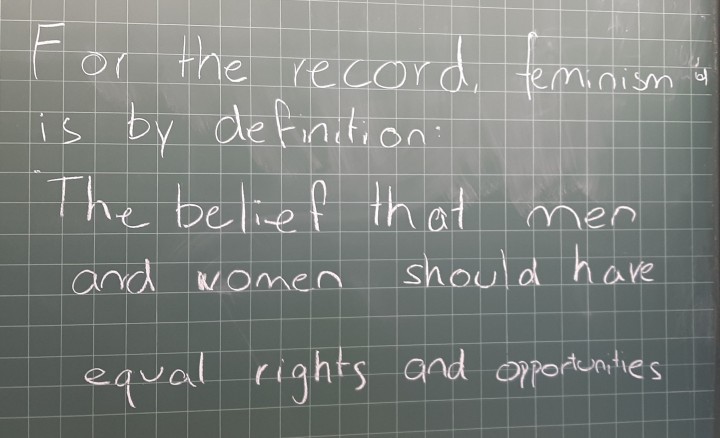 For the record, feminism
is by definition:
The belief that men
and women should have
equal rights and opportunities